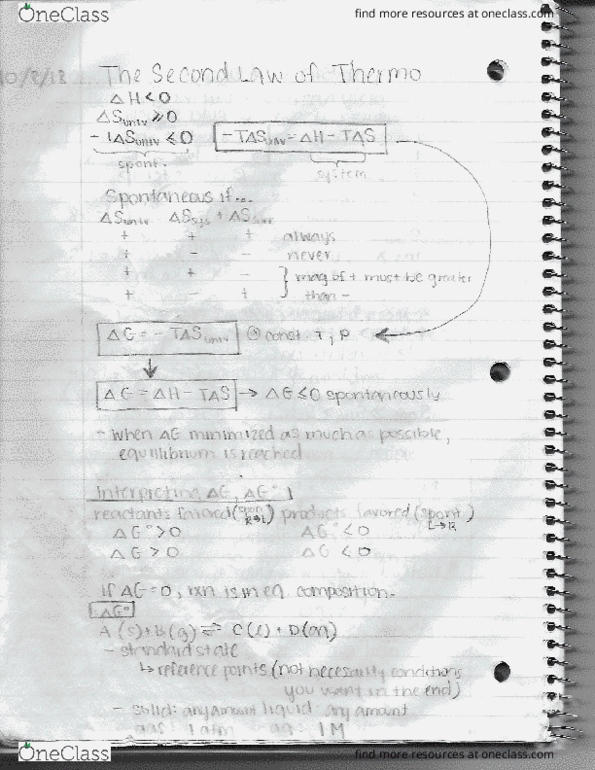 OneClass
find more resources at oneclass.com
10/8/12 The Second Law of Thermo
ΔH<0
ΔSuniv ≥0
-TΔSuniv ≤0 -TΔSuniv=ΔH-TΔS
spont. system
Spontaneous if...
ΔSuniv ΔSsys + ΔSsurr
+ + + always
+ - - never
+ + - } mag of + must be greater
+ - + than -
ΔG = -TΔSuniv @ const. T, P
ΔG = ΔH-TΔS → ΔG ≤0 spontaneously
- when ΔG minimized as much as possible,
equilibrium is reached
Interpreting ΔG, ΔG°
reactants favored (spon R→L) products favored (spont L→R)
ΔG°>0 ΔG°<0
ΔG>0 ΔG<0
if ΔG=0, rxn is in eq composition.
ΔG°
A(s)+B(g) ⇌ C(l)+D(aq)
- standard state
↳ reference points (not necessarily conditions
you want in the end)
- solid: any amount liquid: any amount
gas: 1 atm aq: 1M
OneClass
find more resources at oneclass.com